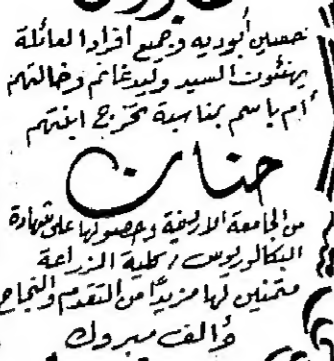 حسين أبوديه وجميع افراد العائلة
يهنئون السيد وليد غانم وخالتهم
أم باسم بمناسبة تخرج ابنتهم
حنان
من الجامعة الاردنية وحصولها على شهادة
البكالوريوس / كلية الزراعة
متمنين لها مزيدًا من التقدم والنجاح
وألف مبروك